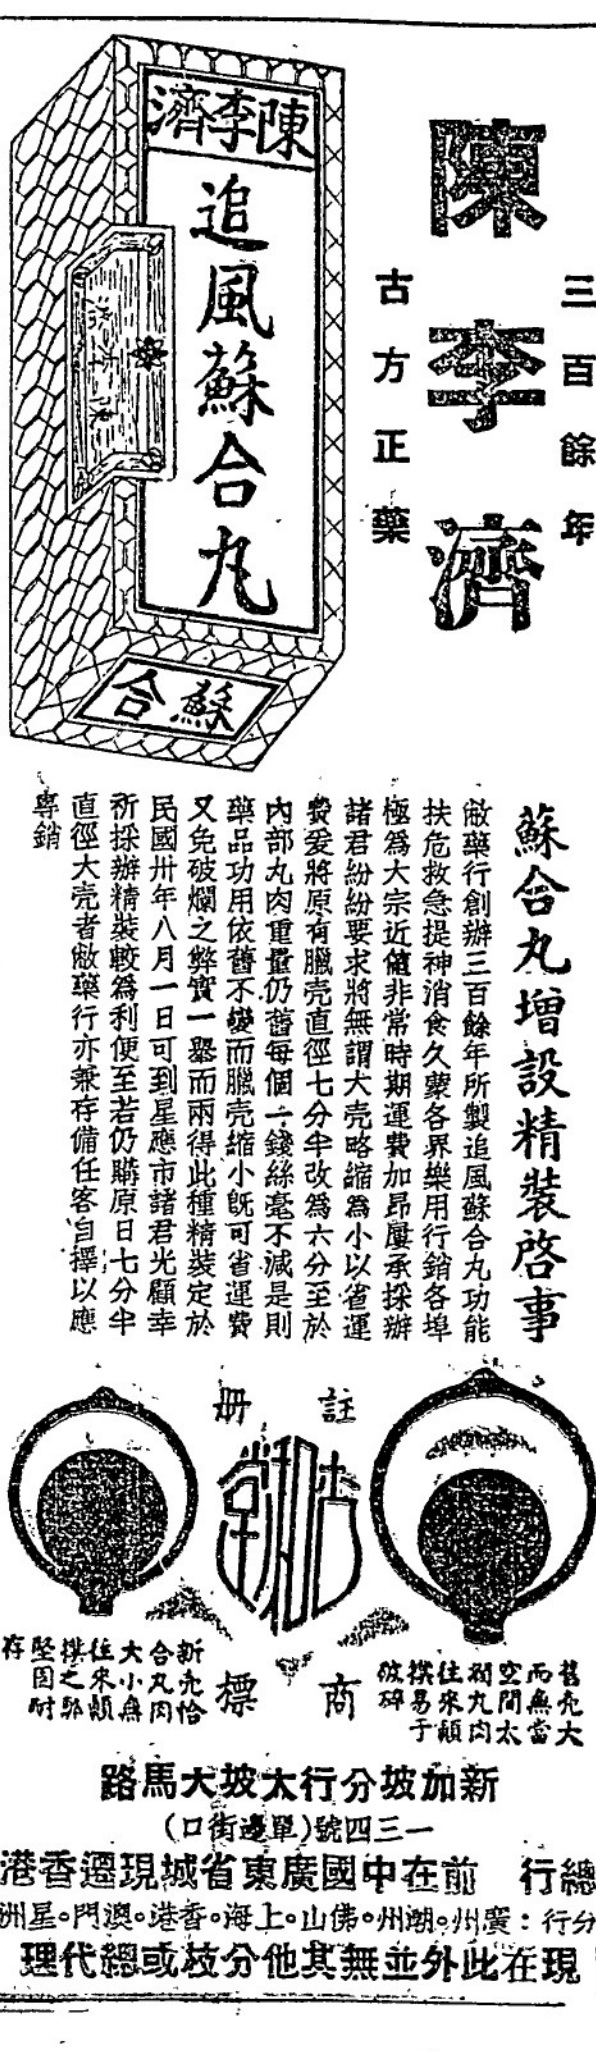 陳李濟
三百餘年
古方正藥
陳李濟
追風蘇合丸
陳李濟
蘇合
蘇合丸增設精裝啓事
敝藥行創辦三百餘年所製追風蘇合丸功能
扶危救急提神消食久蒙各界樂用行銷各埠
極爲大宗近值非常時期運費加昂屢承採辦
諸君紛紛要求將無謂大壳略縮爲小以省運
費爰將原有臘壳直徑七分半改爲六分至於
內部丸肉重量仍舊每個一錢絲毫不減是則
藥品功用依舊不變而臘壳縮小旣可省運費
又免破爛之弊實一舉而兩得此種精裝定於
民國卅年八月一日可到星應市諸君光顧幸
祈採辦精裝較爲利便至若仍購原日七分半
直徑大壳者敝藥行亦兼存備任客自擇以應
專銷
註册
商標
舊壳大
而無當
空間太
濶丸肉
往來顛
撲易于
破碎
新壳恰
合丸肉
大小無
往來顛
撲之弊
堅固耐
存
新加坡分行大坡大馬路
一三四號(單邊街口)
總行 前在中國廣東省城現遷香港
分行：廣州。潮州。佛山。上海。香港。澳門。星洲
現在此外並無其他分枝或總代理